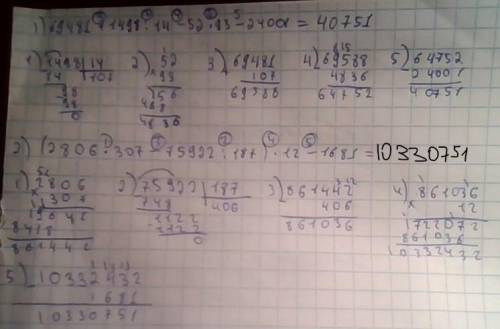 1) 69481 + 1498 : 14 - 52 · 93 - 24001 = 40751
1) 1498 | 14 2) 52 3) 69481 4) 69588 5) 64752
14 107 × 93 107 4836 24001
98 156 69588 64752 40751
98 468
0 4836
2) (2806 · 307 - 75922 : 187) · 12 - 1681 = 10330751
1) 2806 2) 75922 | 187 3) 861442 4) 861036
× 307 748 406 406 × 12
19642 1122 861036 1722072
8418 1122 861036
861442 0 10332432
5) 10332432
1681
10330751